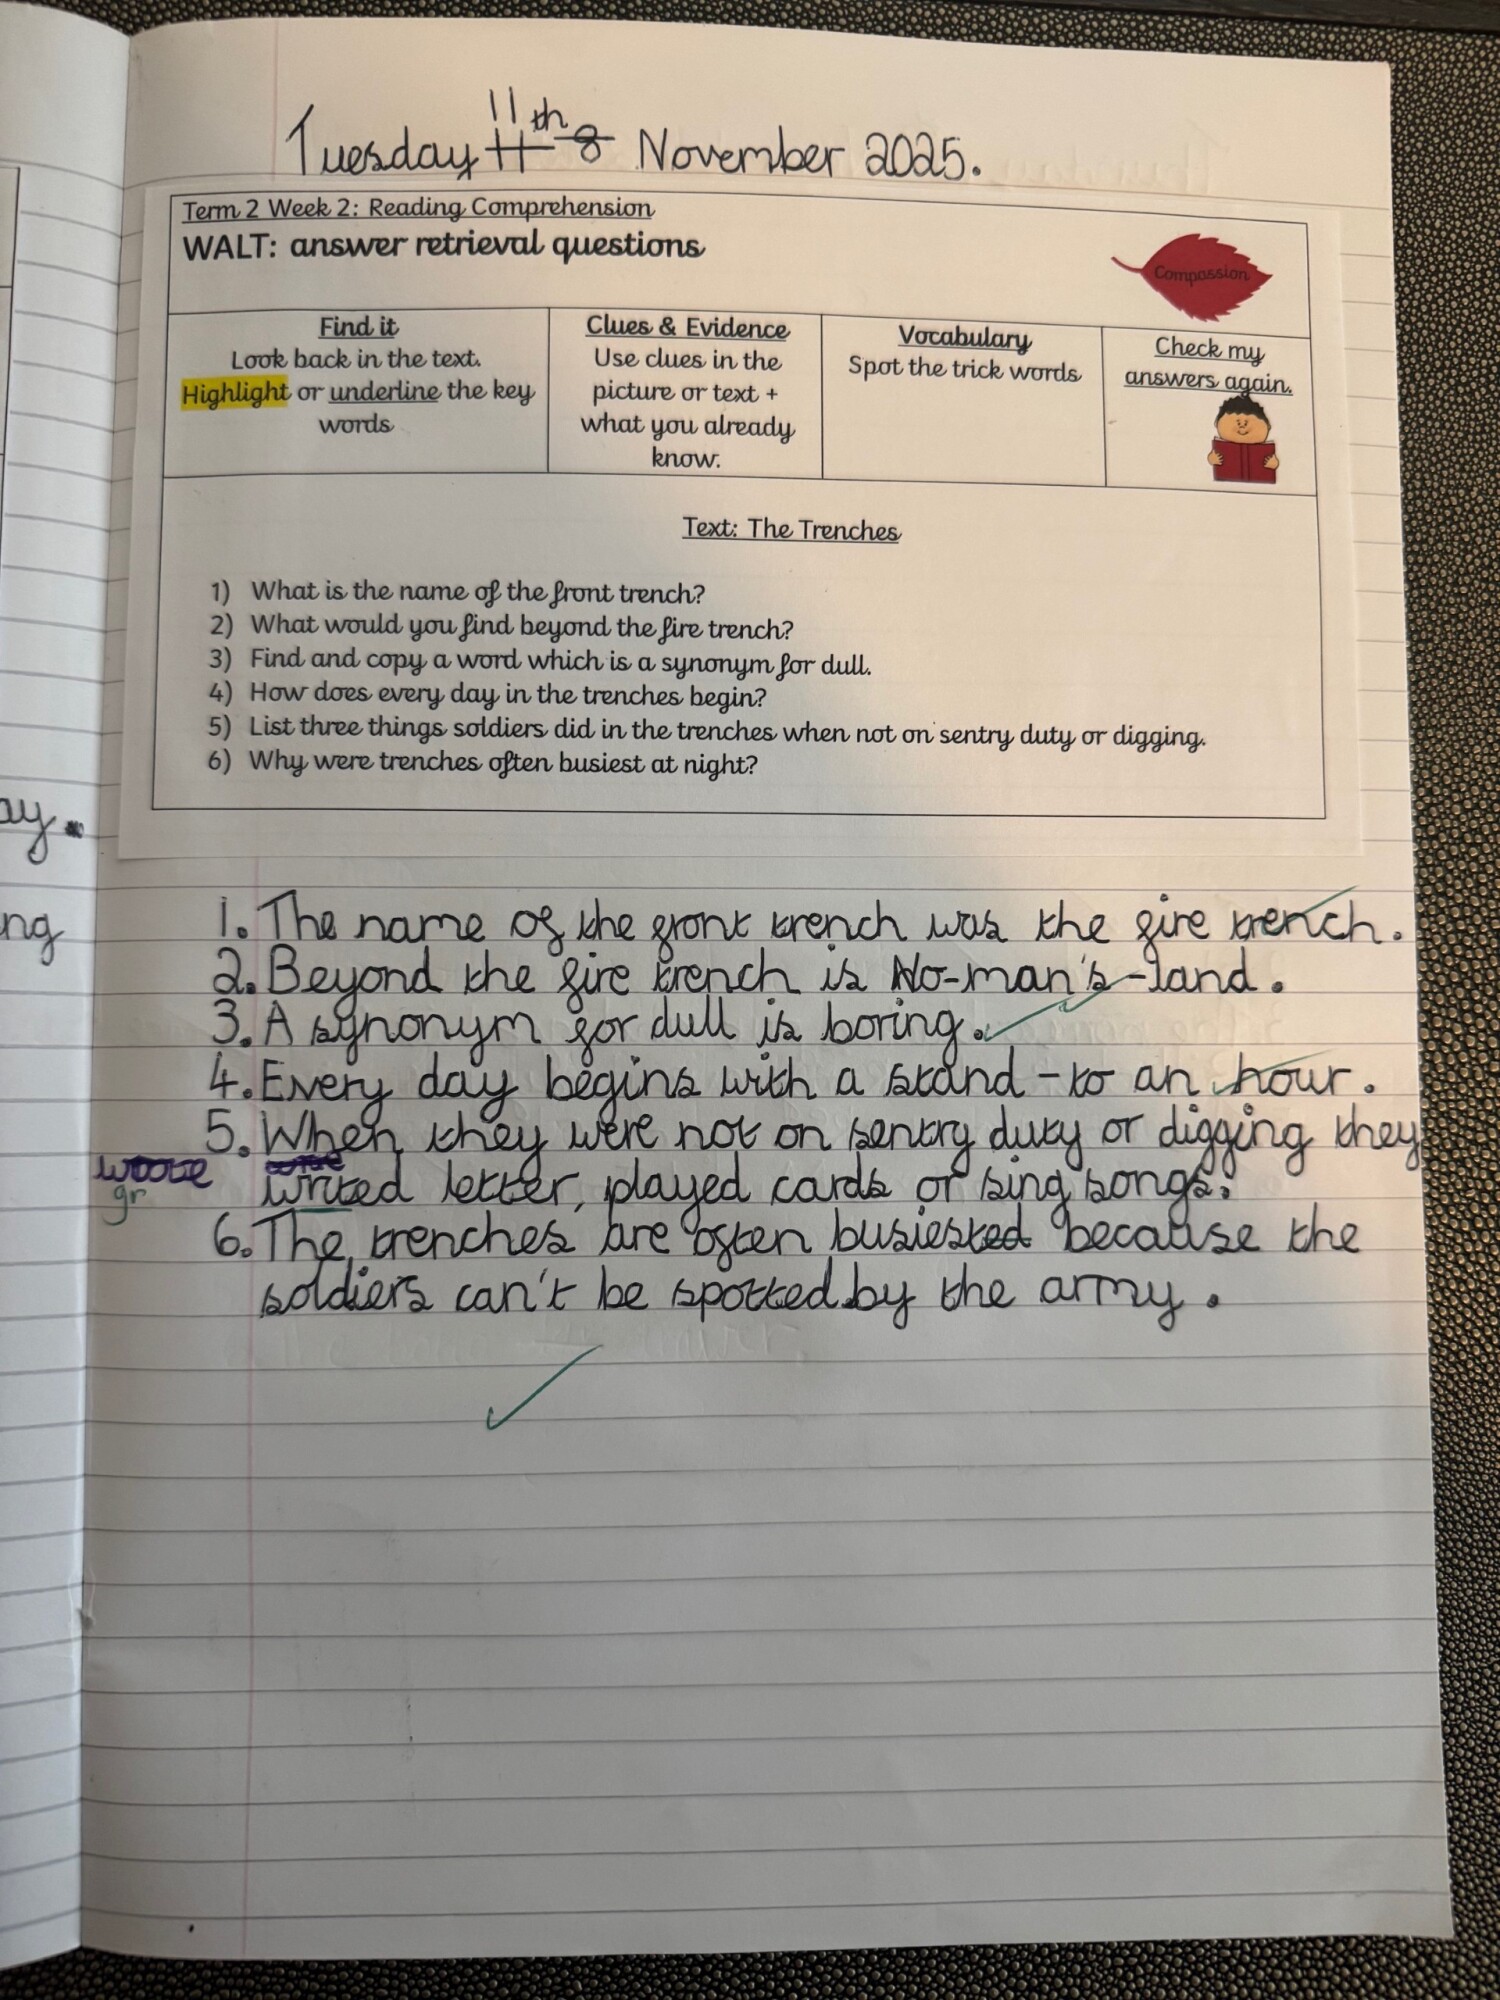 Tuesday 11th November 2025.
Term 2 Week 2: Reading Comprehension
WALT: answer retrieval questions
Compassion
Find it
Look back in the text.
Highlight or underline the key
words
Clues & Evidence
Use clues in the
picture or text +
what you already
know.
Vocabulary
Spot the trick words
Check my
answers again.
Text: The Trenches
1) What is the name of the front trench?
2) What would you find beyond the fire trench?
3) Find and copy a word which is a synonym for dull.
4) How does every day in the trenches begin?
5) List three things soldiers did in the trenches when not on sentry duty or digging.
6) Why were trenches often busiest at night?
ay.
ng
1. The name of the front trench was the fire trench.
2. Beyond the fire trench is No-man's-land.
3. A synonym for dull is boring.
4. Every day begins with a stand-to an hour.
5. When they were not on sentry duty or digging they
writed letter, played cards or sing songs.
gr
6. The trenches are often busiested because the
soldiers can't be spotted by the army.